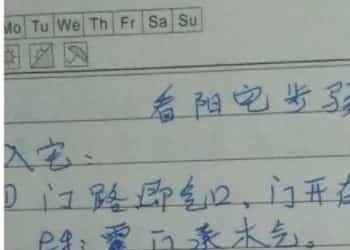 Mo Tu We Th Fr Sa Su
看阳宅步骤
入宅：
① 门路即气口、门开在
P4：需门承水气。